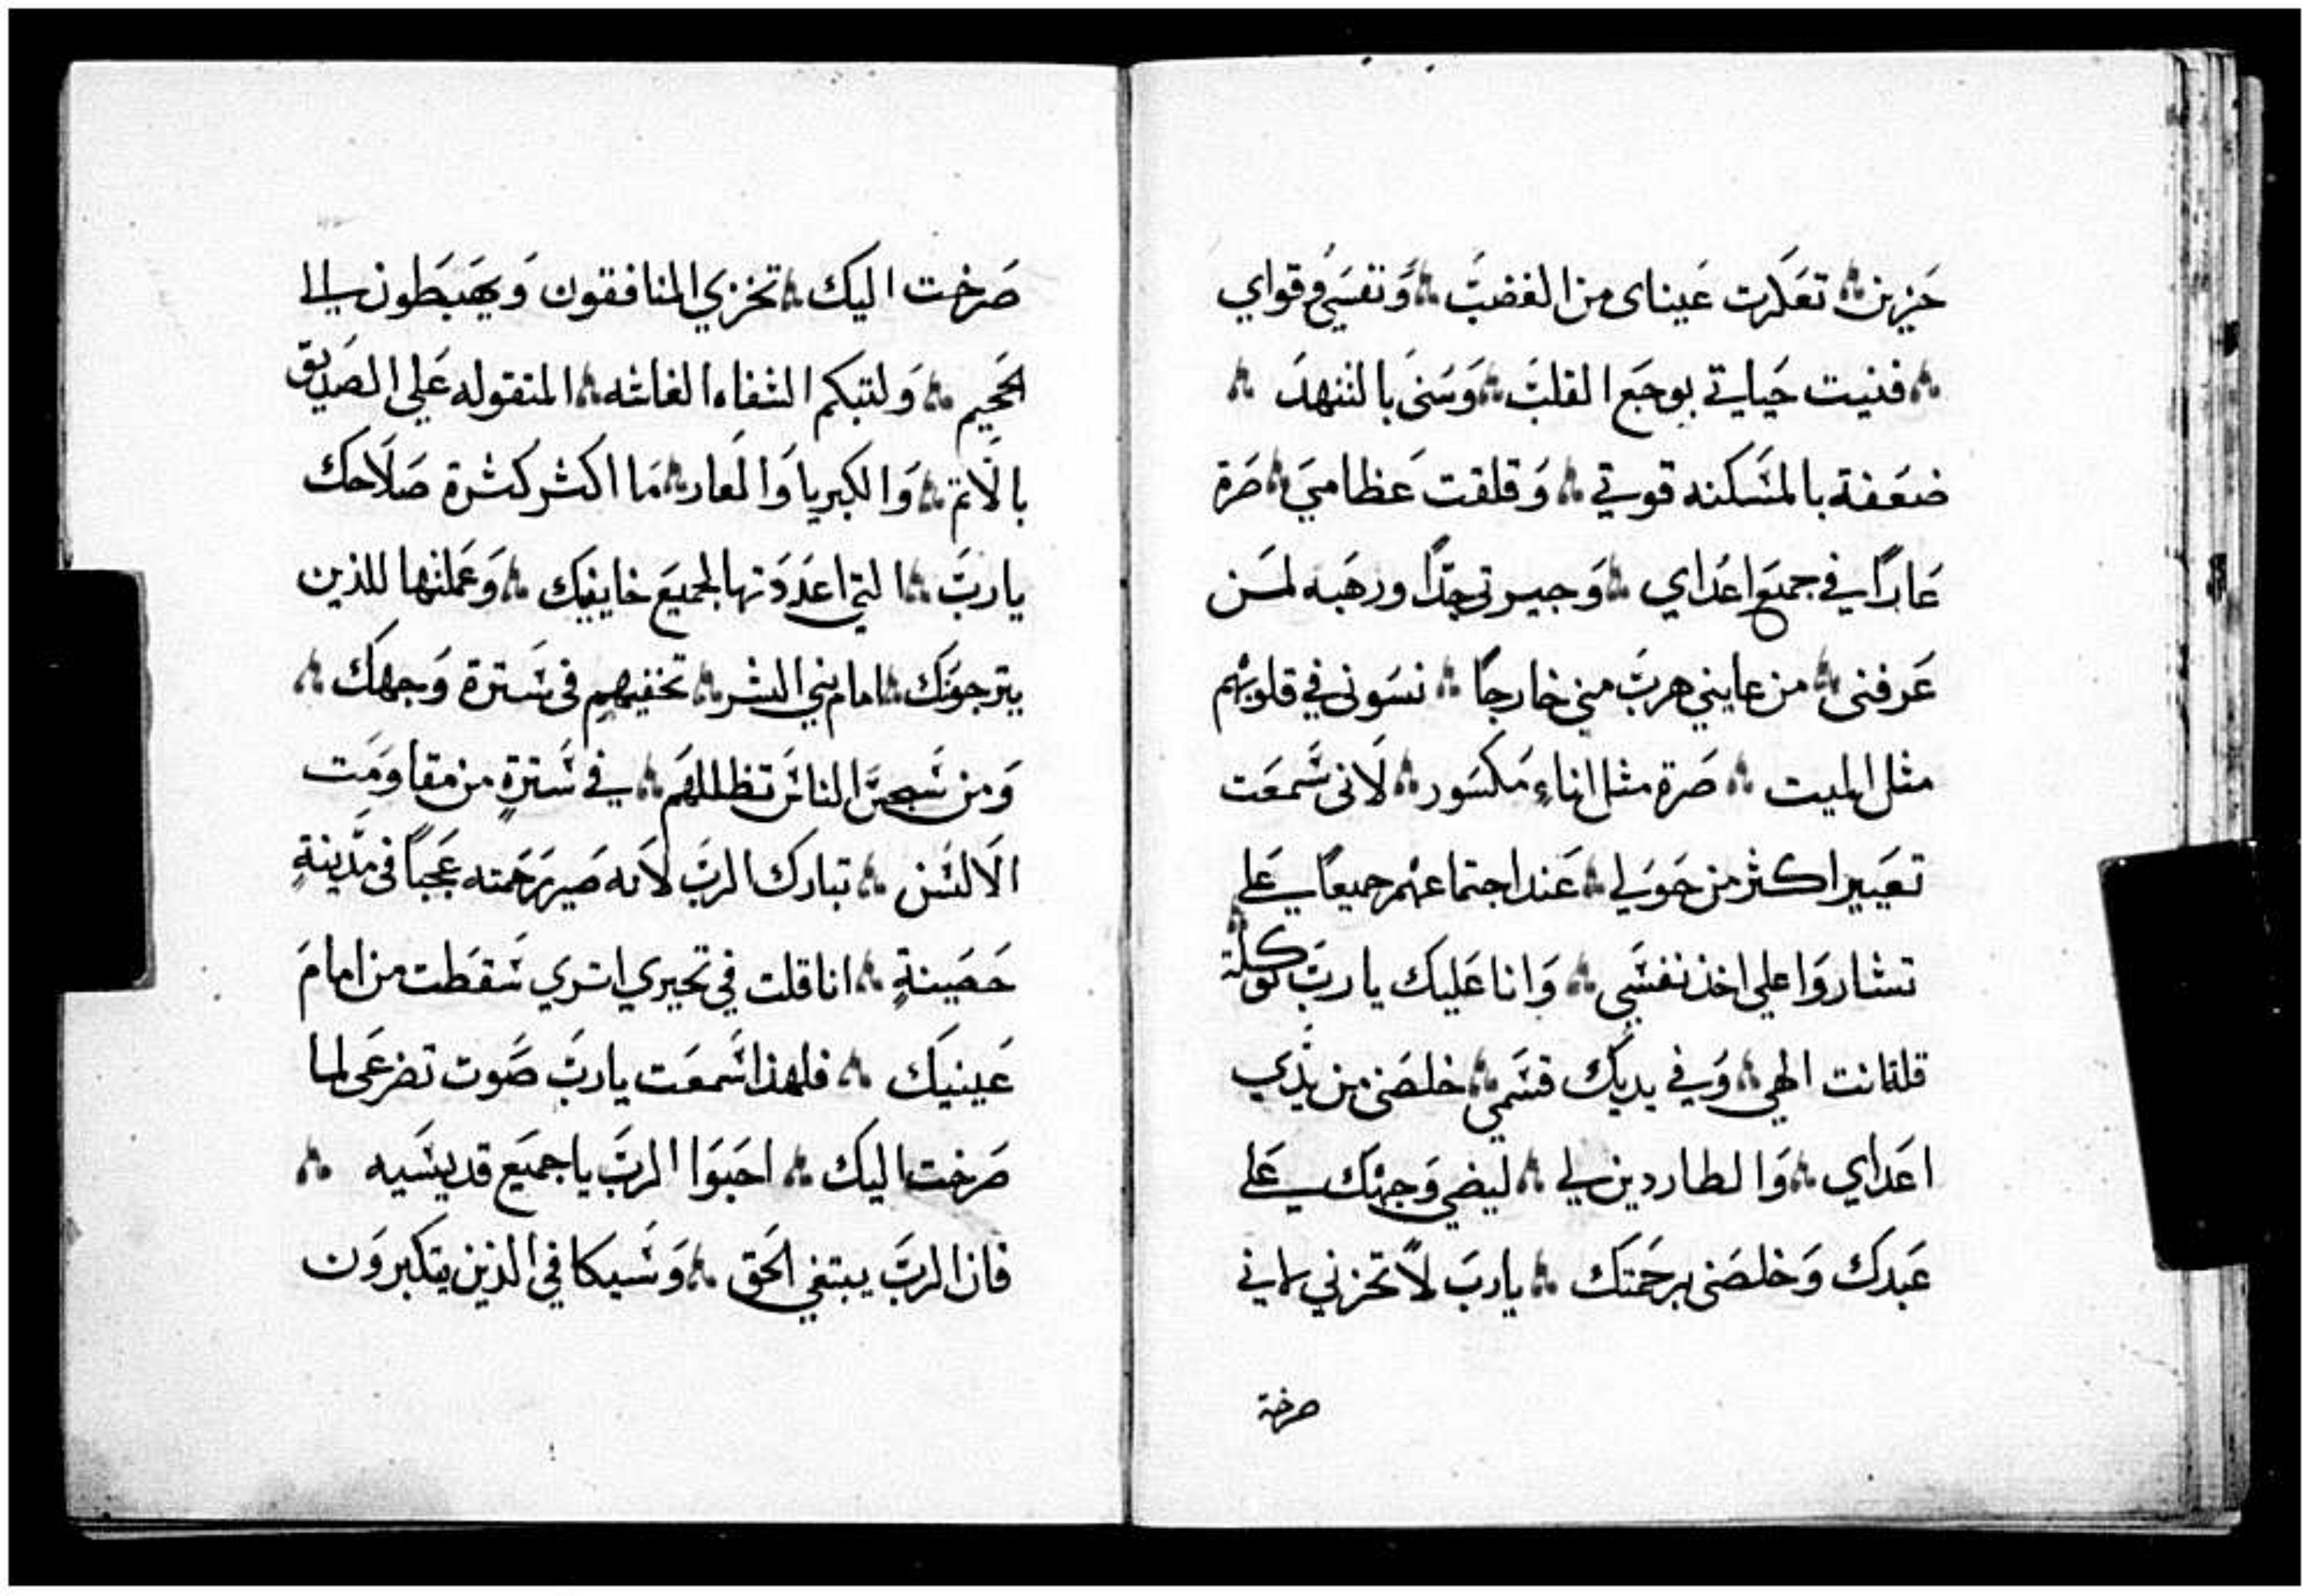 حَزين ۞ تعَكَرت عَيناى من الغضبَ ۞ وَنفسَي وقواي
۞ فنيت حَياتي بوجَع القلبَ ۞ وَسَنى بالتنهدَ ۞
ضعَفة بالمسَكنه قوتي ۞ وَقلقت عَظاميَ ۞ صَرة
عَارًا في جميَع اعَداي ۞ وَجيرتى جدًا ورهَبه لمَن
عَرفنى ۞ من عايني هربَ مني خارجًا ۞ نسَونى في قلوبهم
مثل الميت ۞ صَرة مثل اناءٍ مَكسَور ۞ لَانى سَمعَت
تعَيير اكثر من حَوَلي ۞ عَند اجتماعهم جميعًا علي
تشاروَا علي اخذ نفسَي ۞ وَانا عَليك يا ربَ توكلة
قلة انت الهي ۞ وَفي يديَك قسَمي ۞ خلصَنى من يدَي
اعَداي ۞ وَالطاردين لي ۞ ليضي وَجهَك عَلي
عَبدك وَخلصَنى برحَمتَك ۞ يا ربَ لَا تحزني لاني
صرخة
صَرخت اليَك ۞ تخزي المنافقون وَيهَبَطون الي
الجَحيم ۞ وَلتبكم الشفاه الغاشه ۞ المتقوله عَلي الصَديق
بالَاثم ۞ وَالكبريا وَالعَار ۞ مَا اكثر كثرة صَلَاحك
يا ربَ ۞ التي اعَدَدَتها لجميَع خايفيَك ۞ وَعَملتها للذين
يترجوَنَك ۞ امام بني البشر ۞ تخفيهم فى سَترة وَجهَك ۞
وَمن سَجسَ الناسَ تظللهَم ۞ في سَترةٍ من مقاوَمَت
الَالسَن ۞ تبارك الربَ لَانه صَير رَحَمته عَجبًا فى مَدينةٍ
حَصَينةٍ ۞ انا قلت في تحيري اترى سَقطت من امامَ
عَينيَك ۞ فلهذا سَمعَت يا ربَ صَوت تضرعَى لما
صَرخت اليَك ۞ احَبَوَا الربَ يا جميَع قديسَيه ۞
فان الربَ يبتغي الحَق ۞ وَسَيكافي الذين يتكبروَن